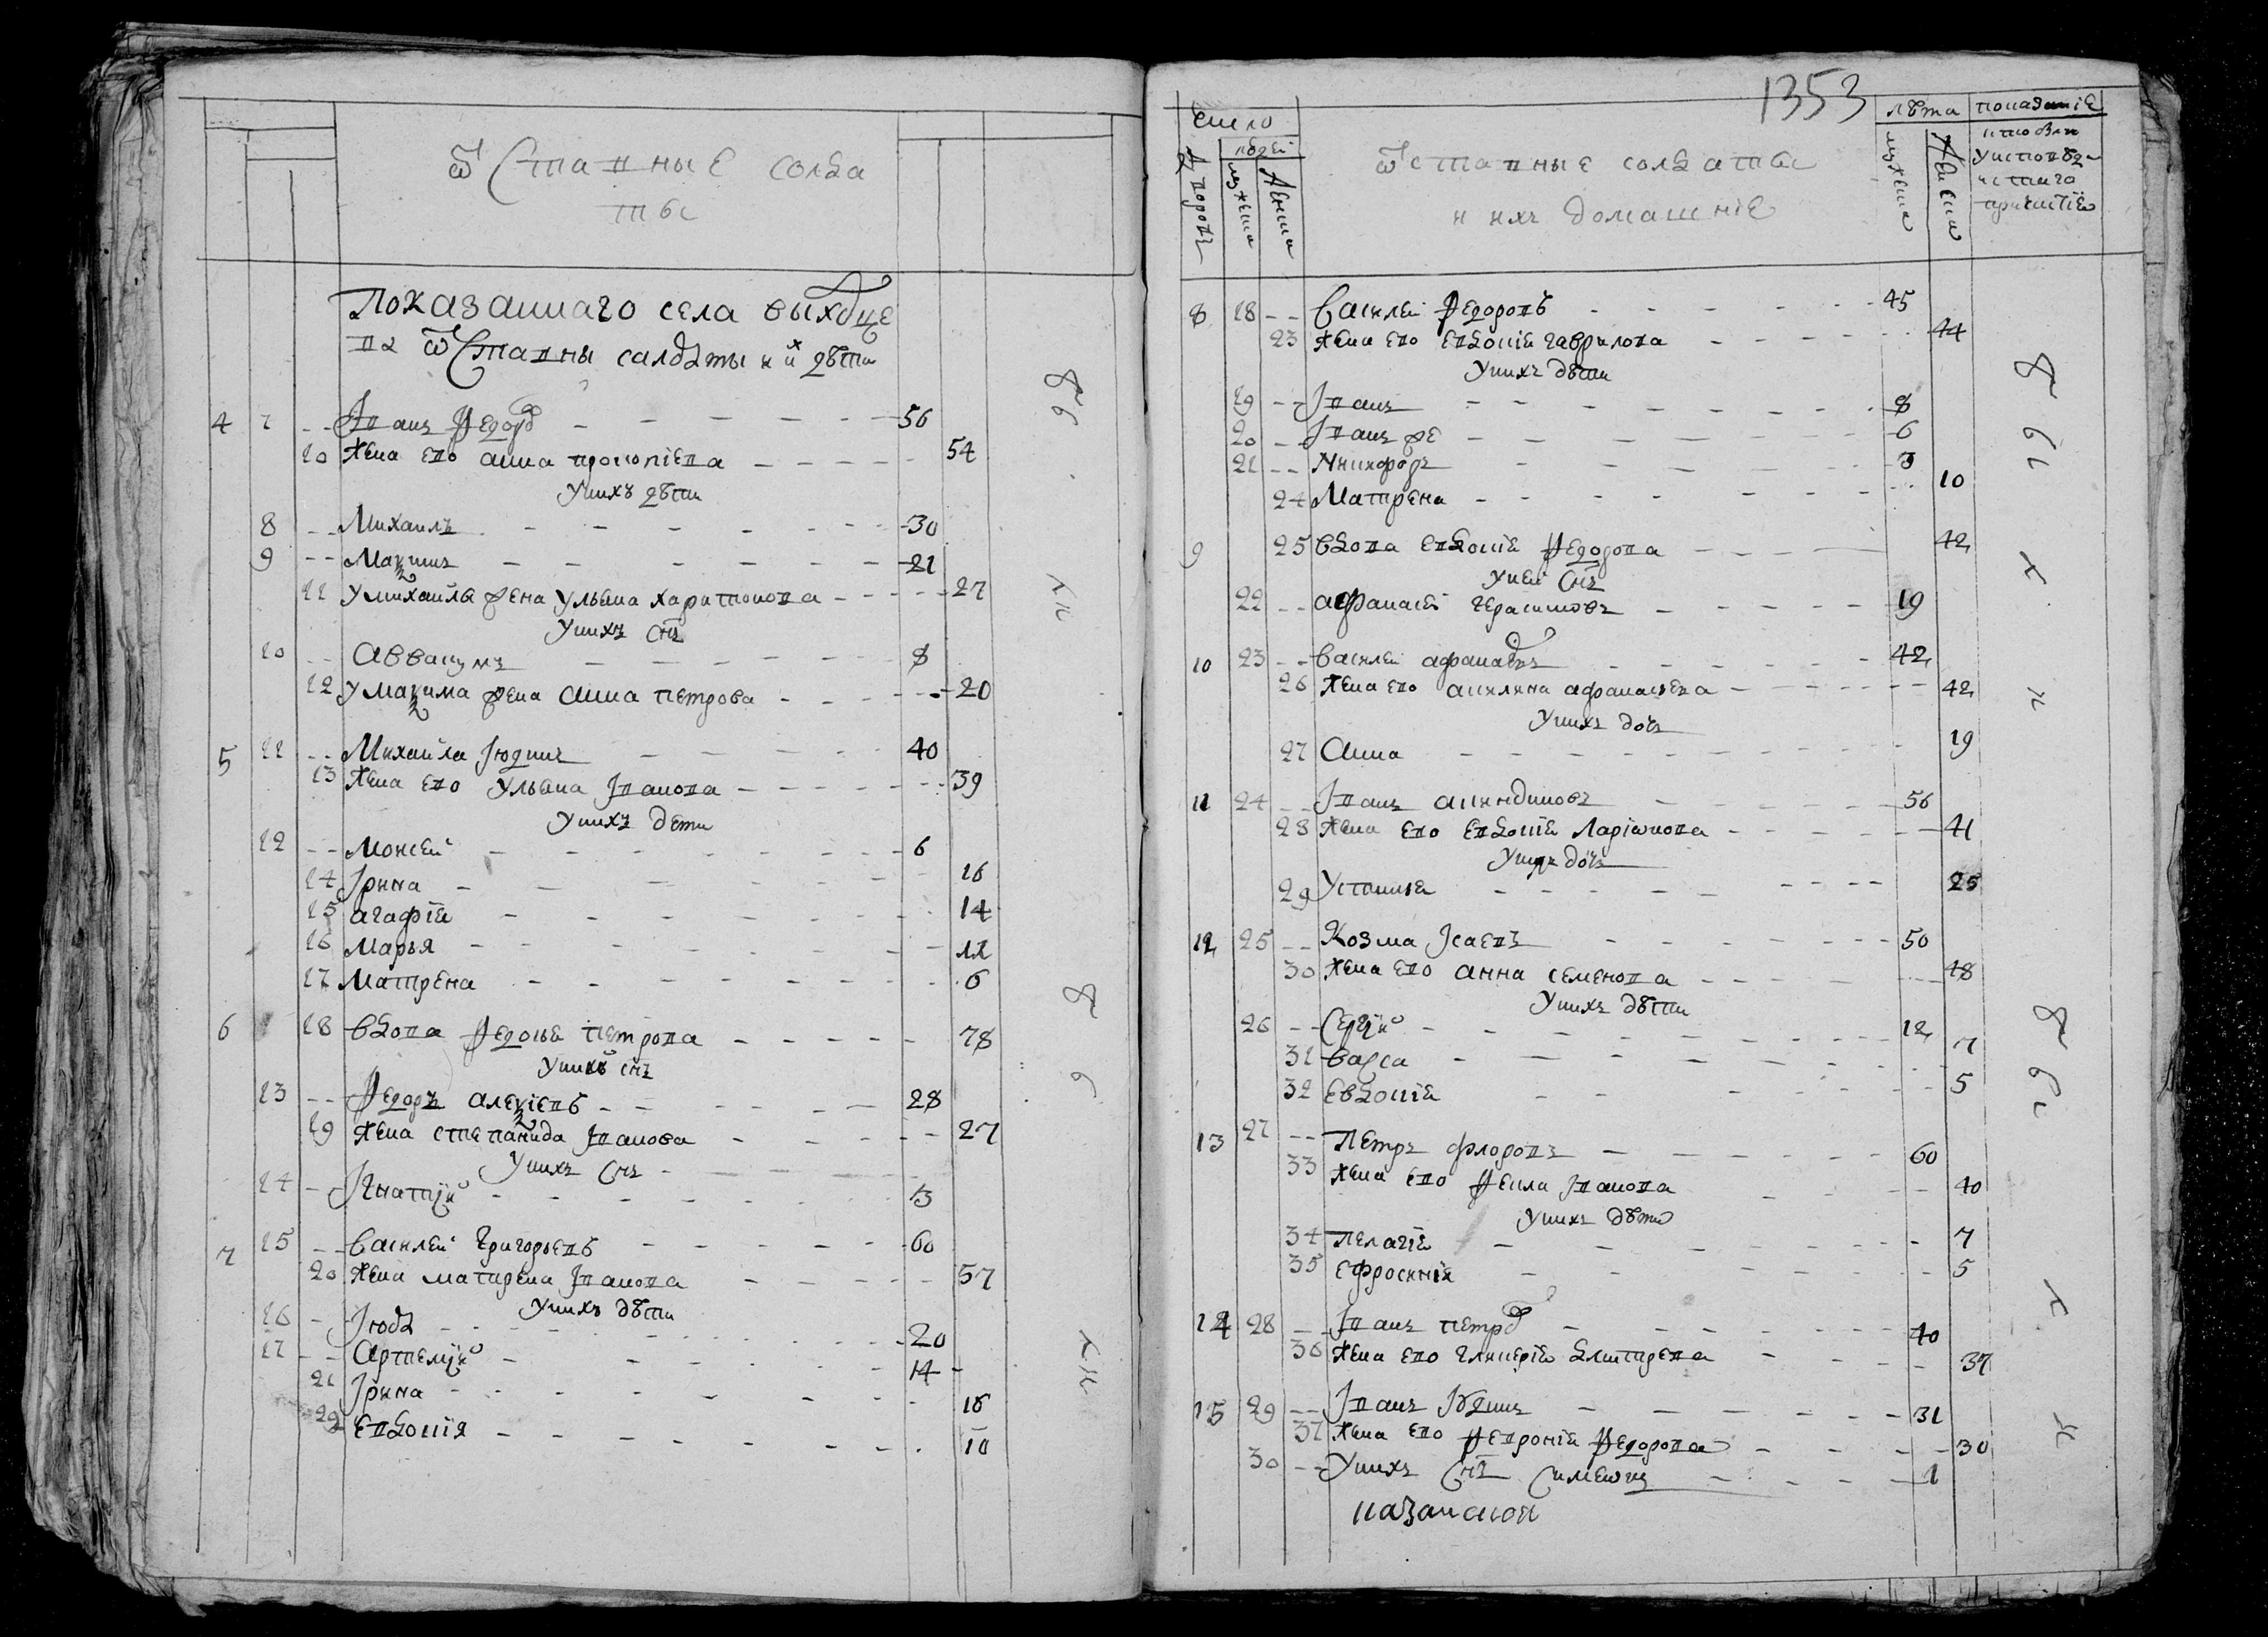 ѿставные солда
ты
Показаннаго села выходце
ва ѿставны салдаты и их дѣти
4 7 -- Iванъ Федоров 56
10 Жена ево анна прокопіева 54
У нихъ дѣти
8 -- Михаилъ 30
9 -- Максимъ 21
11 У михаилы жена ульяна харитонова 27
У нихъ снъ
10 -- Аввакумъ 8
12 У максима жена анна петрова 20
5 11 -- Михаила Iюдинъ 40
13 Жена ево ульяна Iванова 39
У нихъ дети
12 -- Моисей 6
14 Iрина 16
15 агафія 14
16 Марья 11
17 Матрена 6
6 18 вдова Федосья петрова 78
У нихъ снъ
13 -- Федоръ алексіевъ 28
19 Жена степанида Iванова 27
У нихъ снъ
14 -- Iгнатій 3
7 15 -- василей григорьевъ 60
20 Жена матрена Iванова 57
У нихъ дѣти
16 -- Iюда 20
17 -- Артемій 14
21 Iрина 16
22 Евдокия 10
1353
число
людей
дворовъ
мужеска
женска
ѿставные солдаты
и ихъ домашніе
лѣта
мужеска
женска
показаніе
кто былъ
у исповѣди
и святаго
причастія
8 18 -- василей Федоровъ 45
23 Жена ево евдокія гаврилова 44
У нихъ дѣти
19 -- Iванъ 8
20 -- Iванъ же 6
21 -- Никифоръ 3
24 Матрена 10
9 25 вдова евдокія Федорова 42
У ней снъ
22 -- афанасей герасимовъ 19
10 23 -- василей афанасьевъ 42
26 Жена ево акилина афанасьева 42
У нихъ дочь
27 Анна 19
11 24 -- Iванъ акиндиновъ 56
28 Жена ево евдокія Ларіѡнова 41
У нихъ дочь
29 Устинья 25
12 25 -- Козма Iсаевъ 50
30 Жена ево анна семенова 48
У нихъ дѣти
26 -- Сергій 12
31 васса 7
32 Евдокія 5
13 27 -- Петръ флоровъ 60
33 Жена ево Фекла Iванова 40
У нихъ дѣти
34 Пелагія 7
35 ефросиния 5
14 28 -- Iванъ петров 40
36 Жена ево гликерія дмитрева 37
15 29 -- Iванъ Iюдинъ 31
37 Жена ево Февронія Федорова 30
30 -- У нихъ снъ Симеѡнъ 1
казанской